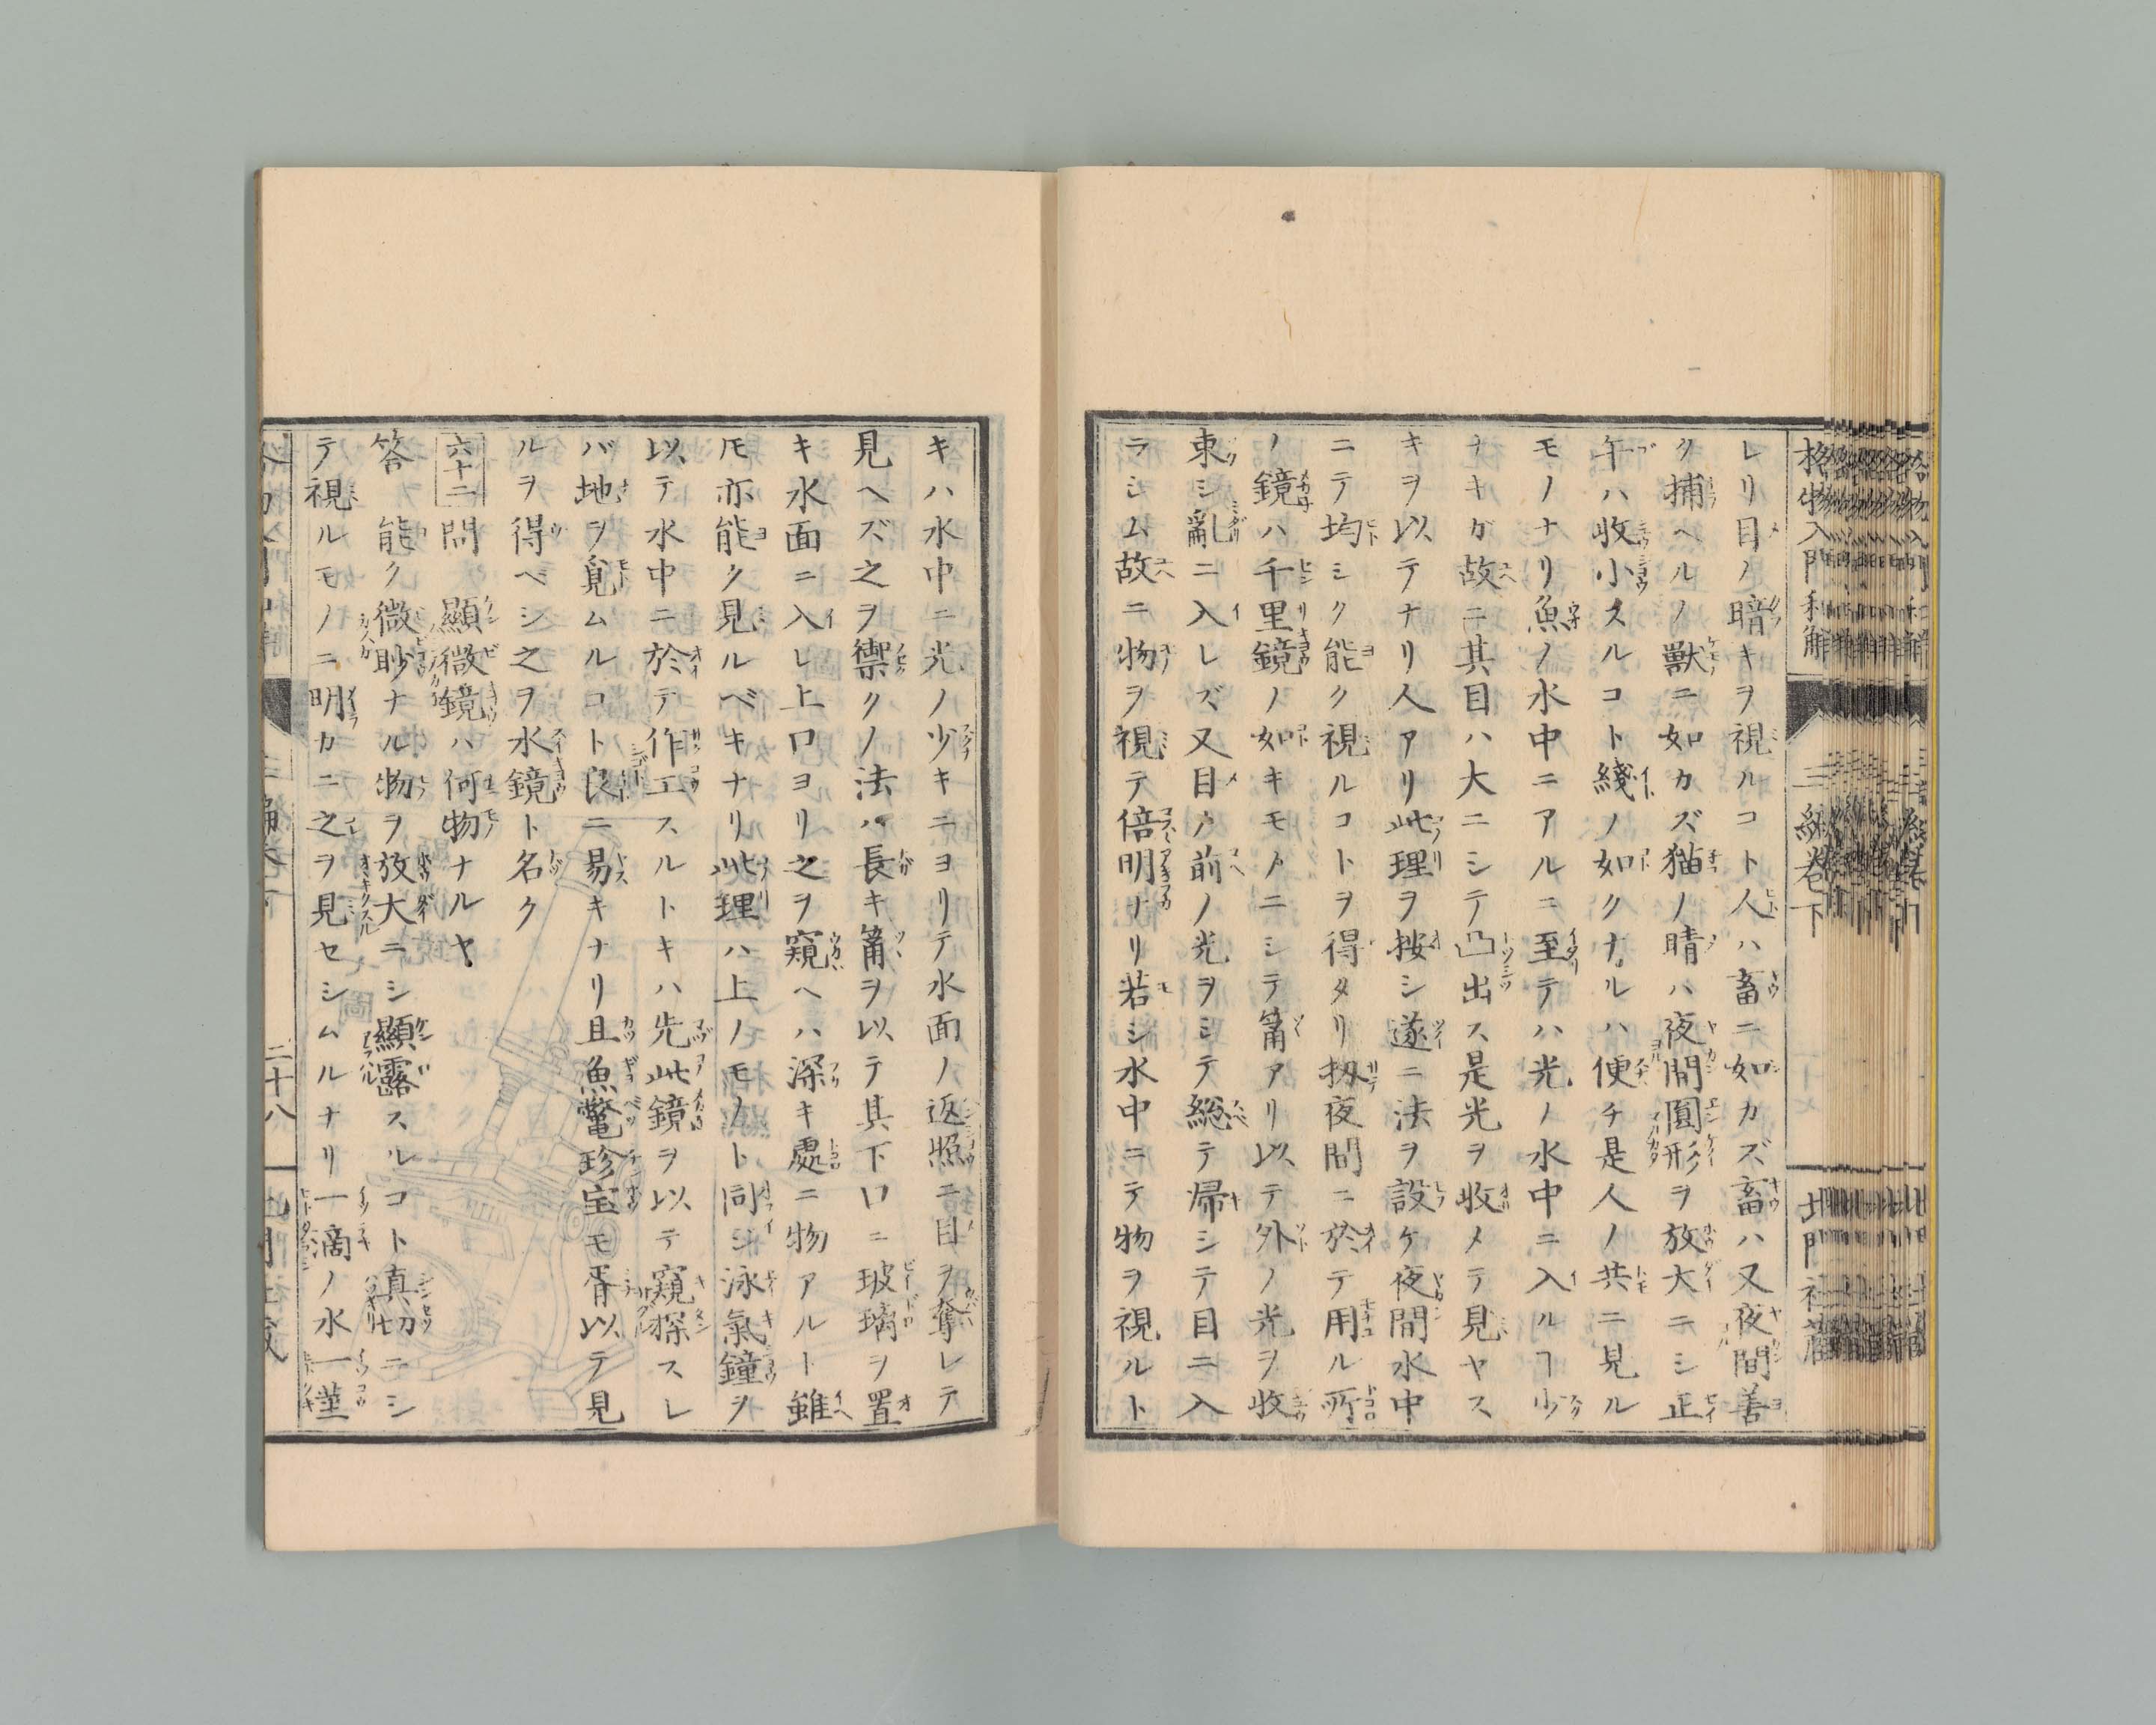 格物入門和解
三編巻下
北門社蔵
レリ目ノ暗キヲ視ルコト人ハ畜ニ如カズ畜ハ又夜間善
ク捕ヘルノ獣ニ如カズ猫ノ晴ハ夜間圓形ヲ放大ニシ正
午ハ收小スルコト綫ノ如クナルハ便チ是人ノ共ニ見ル
モノナリ魚ノ水中ニアルニ至テハ光ノ水中ニ入ルヿ少
ナキガ故ニ其目ハ大ニシテ凸出ス是光ヲ收メテ見ヤス
キヲ以テナリ人アリ此理ヲ按シ遂ニ法ヲ設ケ夜間水中
ニテ均シク能ク視ルコトヲ得タリ扨夜間ニ於テ用ル所
ノ鏡ハ千里鏡ノ如キモノニシテ筩アリ以テ外ノ光ヲ收
束シ亂ニ入レズ又目ノ前ノ光ヲシテ総テ帰シテ目ニ入
ラシム故ニ物ヲ視テ倍明ナリ若シ水中ニテ物ヲ視ルト
キハ水中ニ光ノ少キニヨリテ水面ノ返照ニ目ヲ奪レテ
見ヘズ之ヲ禦クノ法ハ長キ筩ヲ以テ其下口ニ玻璃ヲ置
キ水面ニ入レ上口ヨリ之ヲ窺ヘハ深キ處ニ物アルト雖
モ亦能ク見ルベキナリ此理ハ上ノモノト同ジ泳氣鐘ヲ
以テ水中ニ於テ作工スルトキハ先此鏡ヲ以テ窺探スレ
バ地ヲ覓ムルコト良ニ易キナリ且魚鼈珍宝モ胥以テ見
ルヲ得ベシ之ヲ水鏡ト名ク
六十二 問 顯微鏡ハ何物ナルヤ
答 能ク微眇ナル物ヲ放大ニシ顯露スルコト真切ニシ
テ視ルモノニ明カニ之ヲ見セシムルナリ一滴ノ水一莖
二十八